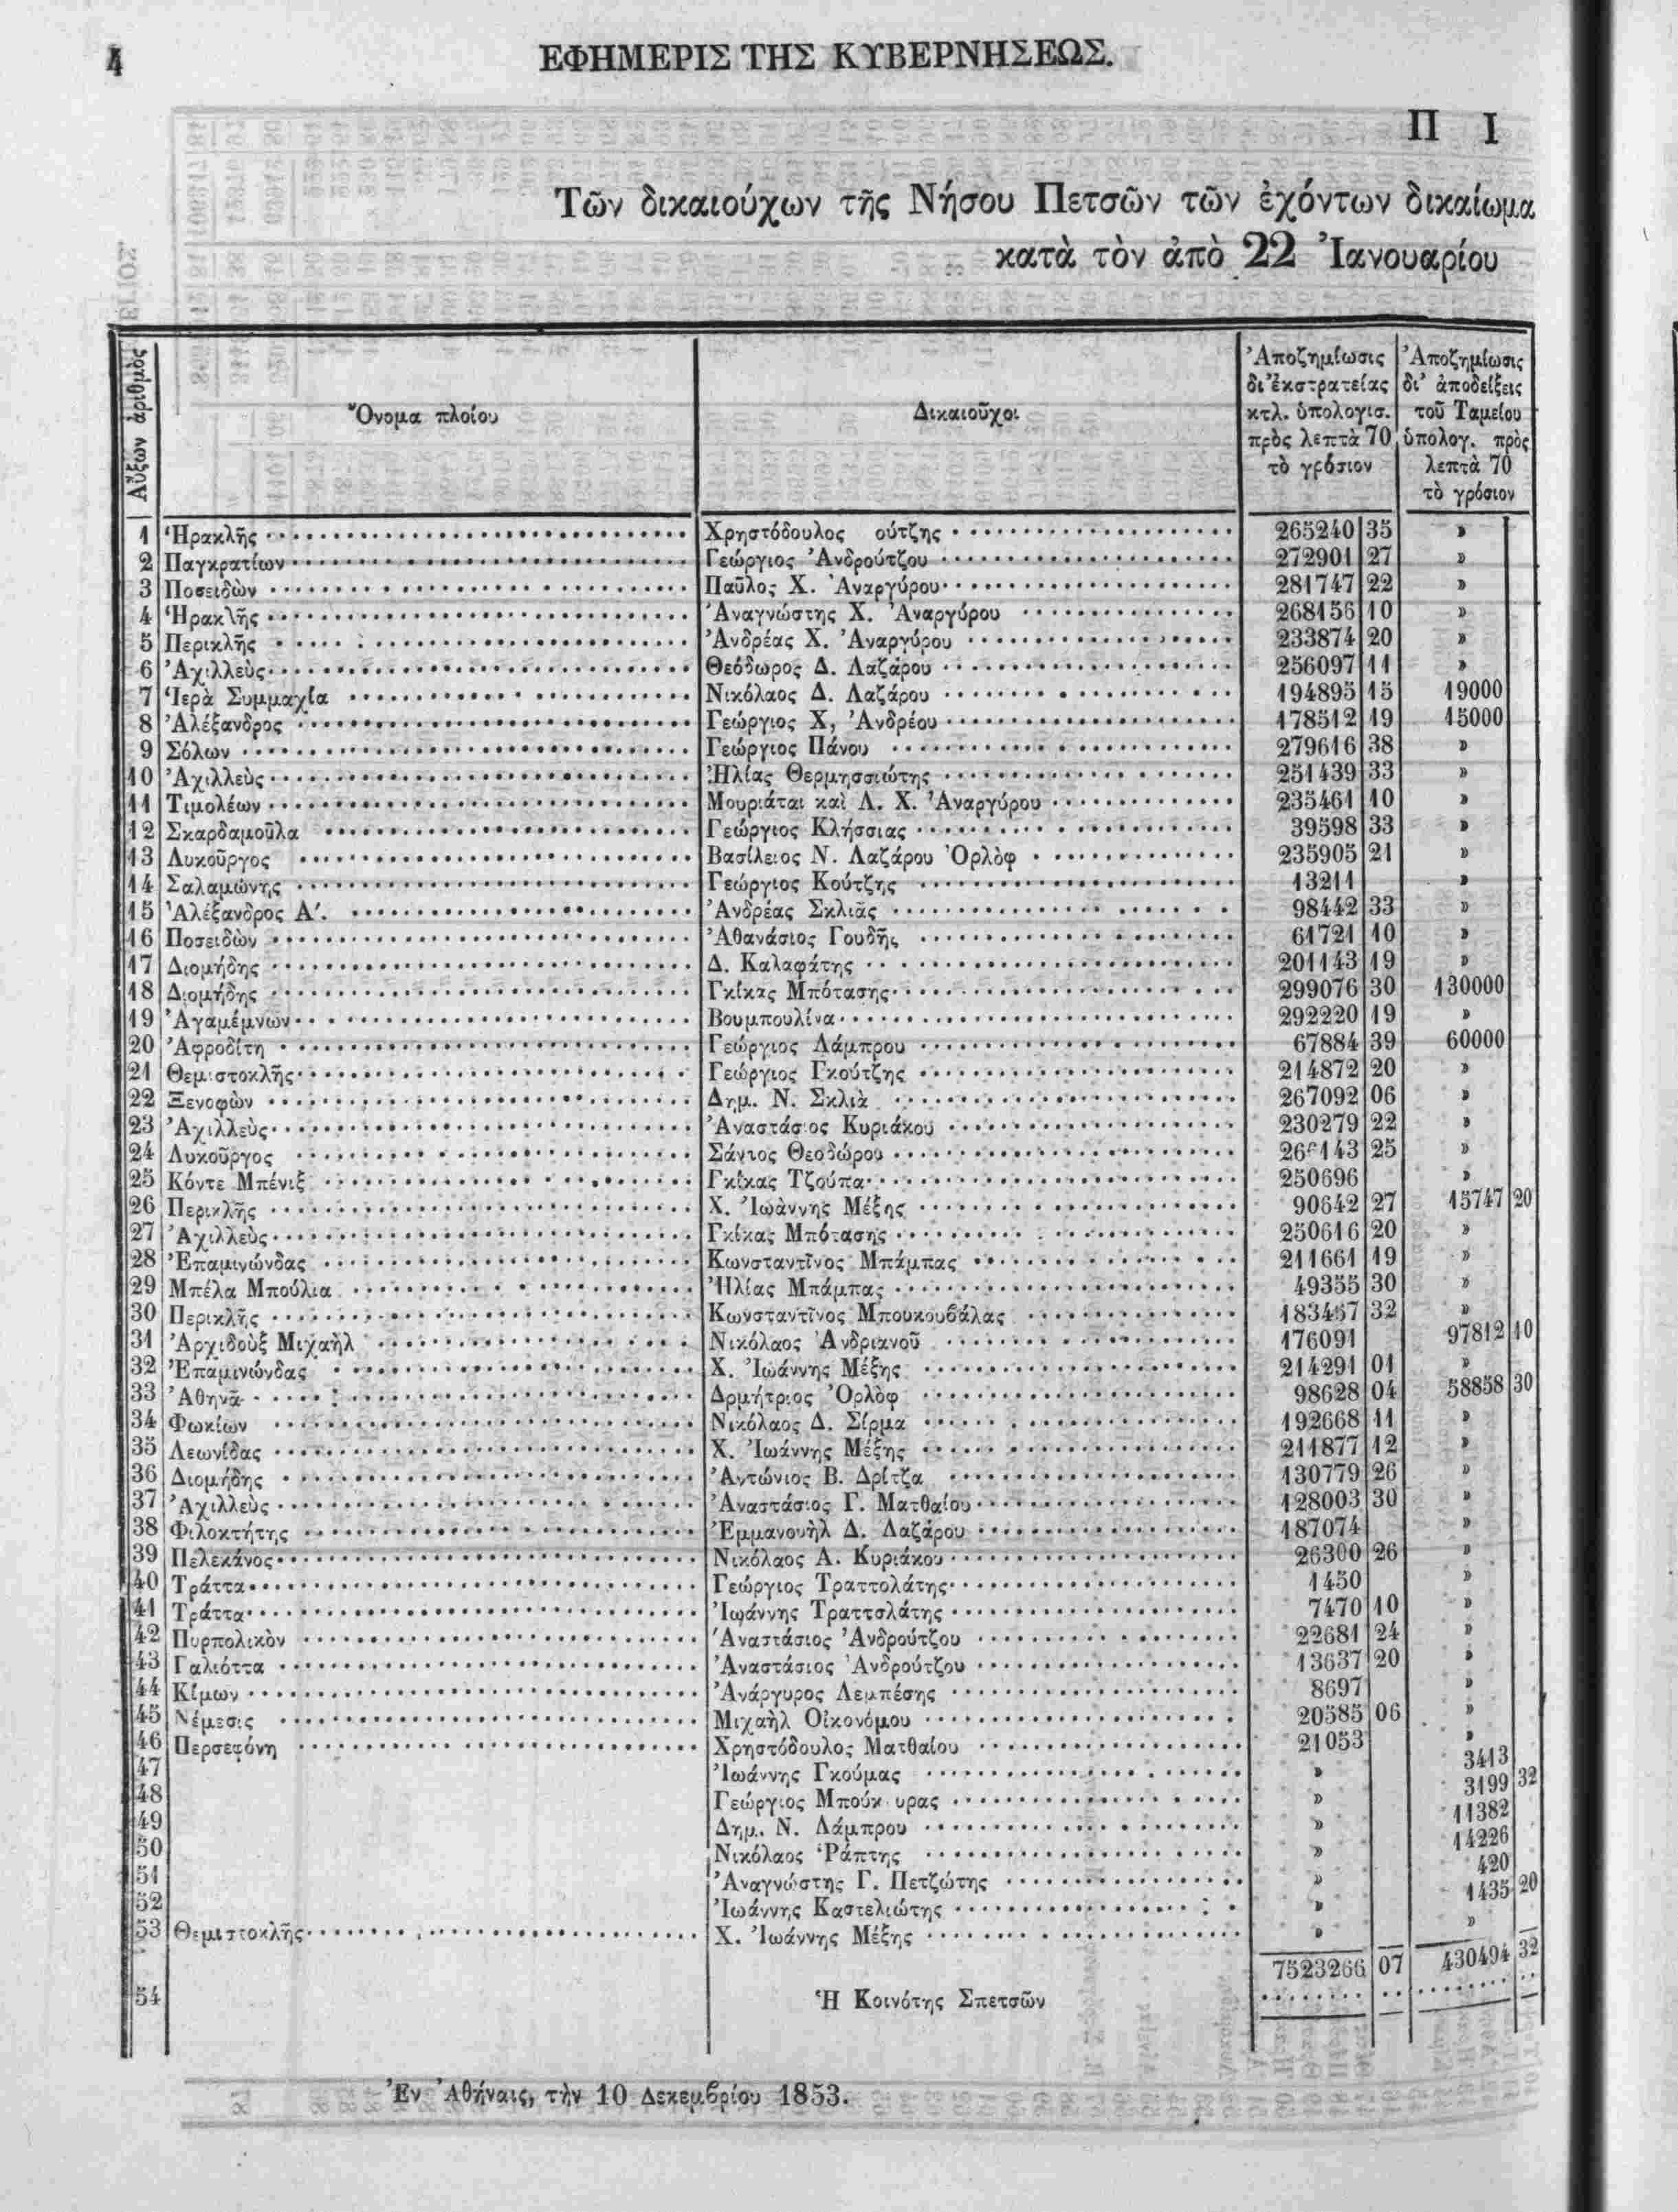 4
ΕΦΗΜΕΡΙΣ ΤΗΣ ΚΥΒΕΡΝΗΣΕΩΣ.
Π Ι
Τῶν δικαιούχων τῆς Νήσου Πετσῶν τῶν ἐχόντων δικαίωμα
κατὰ τὸν ἀπὸ 22 Ἰανουαρίου
Αὔξων ἀριθμὸς
Ὄνομα πλοίου
Δικαιοῦχοι
Ἀποζημίωσις
δι' ἐκστρατείας
κτλ. ὑπολογισ.
πρὸς λεπτὰ 70
τὸ γρόσιον
Ἀποζημίωσις
δι' ἀποδείξεις
τοῦ Ταμείου
ὑπολογ. πρὸς
λεπτὰ 70
τὸ γρόσιον
1 Ἡρακλῆς Χρηστόδουλος ούτζης 265240 35 »
2 Παγκρατίων Γεώργιος Ἀνδρούτζου 272901 27 »
3 Ποσειδὼν Παῦλος Χ. Ἀναργύρου 281747 22 »
4 Ἡρακλῆς Ἀναγνώστης Χ. Ἀναργύρου 268156 10 »
5 Περικλῆς Ἀνδρέας Χ. Ἀναργύρου 233874 20 »
6 Ἀχιλλεὺς Θεόδωρος Δ. Λαζάρου 256097 11 »
7 Ἱερὰ Συμμαχία Νικόλαος Δ. Λαζάρου 194895 15 19000
8 Ἀλέξανδρος Γεώργιος Χ, Ἀνδρέου 178512 19 15000
9 Σόλων Γεώργιος Πάνου 279616 38 »
10 Ἀχιλλεὺς Ἠλίας Θερμησσιώτης 251439 33 »
11 Τιμολέων Μουριάται καὶ Λ. Χ. Ἀναργύρου 235461 10 »
12 Σκαρδαμοῦλα Γεώργιος Κλήσσιας 39598 33 »
13 Λυκοῦργος Βασίλειος Ν. Λαζάρου Ὀρλὸφ 235905 21 »
14 Σαλαμώνης Γεώργιος Κούτζης 13211 »
15 Ἀλέξανδρος Α΄. Ἀνδρέας Σκλιᾶς 98442 33 »
16 Ποσειδὼν Ἀθανάσιος Γουδῆς 61721 10 »
17 Διομήδης Δ. Καλαφάτης 201143 19 »
18 Διομήδης Γκίκας Μπότασης 299076 30 130000
19 Ἀγαμέμνων Βουμπουλίνα 292220 19 »
20 Ἀφροδίτη Γεώργιος Λάμπρου 67884 39 60000
21 Θεμιστοκλῆς Γεώργιος Γκούτζης 214872 20 »
22 Ξενοφὼν Δημ. Ν. Σκλιὰ 267092 06 »
23 Ἀχιλλεὺς Ἀναστάσιος Κυριάκου 230279 22 »
24 Λυκοῦργος Σάντος Θεοδώρου 25 »
25 Κόντε Μπένιξ Γκίκας Τζούπα 250696 »
26 Περικλῆς Χ. Ἰωάννης Μέξης 90642 27 15747 20
27 Ἀχιλλεὺς Γκίκας Μπότασης 250616 20 »
28 Ἐπαμινώνδας Κωνσταντῖνος Μπάμπας 211661 19 »
29 Μπέλα Μπούλια Ἠλίας Μπάμπας 49355 30 »
30 Περικλῆς Κωνσταντῖνος Μπουκουβάλας 183457 32 »
31 Ἀρχιδοὺξ Μιχαὴλ Νικόλαος Ἀνδριανοῦ 176091 97812 10
32 Ἐπαμινώνδας Χ. Ἰωάννης Μέξης 214291 01 »
33 Ἀθηνᾶ Δρμήτριος Ὀρλὸφ 98628 04 58858 30
34 Φωκίων Νικόλαος Δ. Σίρμα 192668 11 »
35 Λεωνίδας Χ. Ἰωάννης Μέξης 211877 12 »
36 Διομήδης Ἀντώνιος Β. Δρίτζα 130779 26 »
37 Ἀχιλλεὺς Ἀναστάσιος Γ. Ματθαίου 128003 30 »
38 Φιλοκτήτης Ἐμμανουὴλ Δ. Λαζάρου 187074 »
39 Πελεκάνος Νικόλαος Α. Κυριάκου 26300 26 »
40 Τράττα Γεώργιος Τραττολάτης 1450 »
41 Τράττα Ἰωάννης Τραττσλάτης 7470 10 »
42 Πυρπολικὸν Ἀναστάσιος Ἀνδρούτζου 22681 24 »
43 Γαλιόττα Ἀναστάσιος Ἀνδρούτζου 13637 20 »
44 Κίμων Ἀνάργυρος Λεμπέσης 8697 »
45 Νέμεσις Μιχαὴλ Οἰκονόμου 20585 06 »
46 Περσεφόνη Χρηστόδουλος Ματθαίου 21053 »
47 Ἰωάννης Γκούμας » 3413
48 Γεώργιος Μπούκ υρας » 3199 32
49 Δημ. Ν. Λάμπρου » 11382
50 Νικόλαος Ῥάπτης » 14226
51 Ἀναγνώστης Γ. Πετζώτης » 420
52 Ἰωάννης Καστελιώτης » 1435 20
53 Θεμιστοκλῆς Χ. Ἰωάννης Μέξης » »
7523266 07 430494 32
54 Ἡ Κοινότης Σπετσῶν
Ἐν Ἀθήναις, τὴν 10 Δεκεμβρίου 1853.